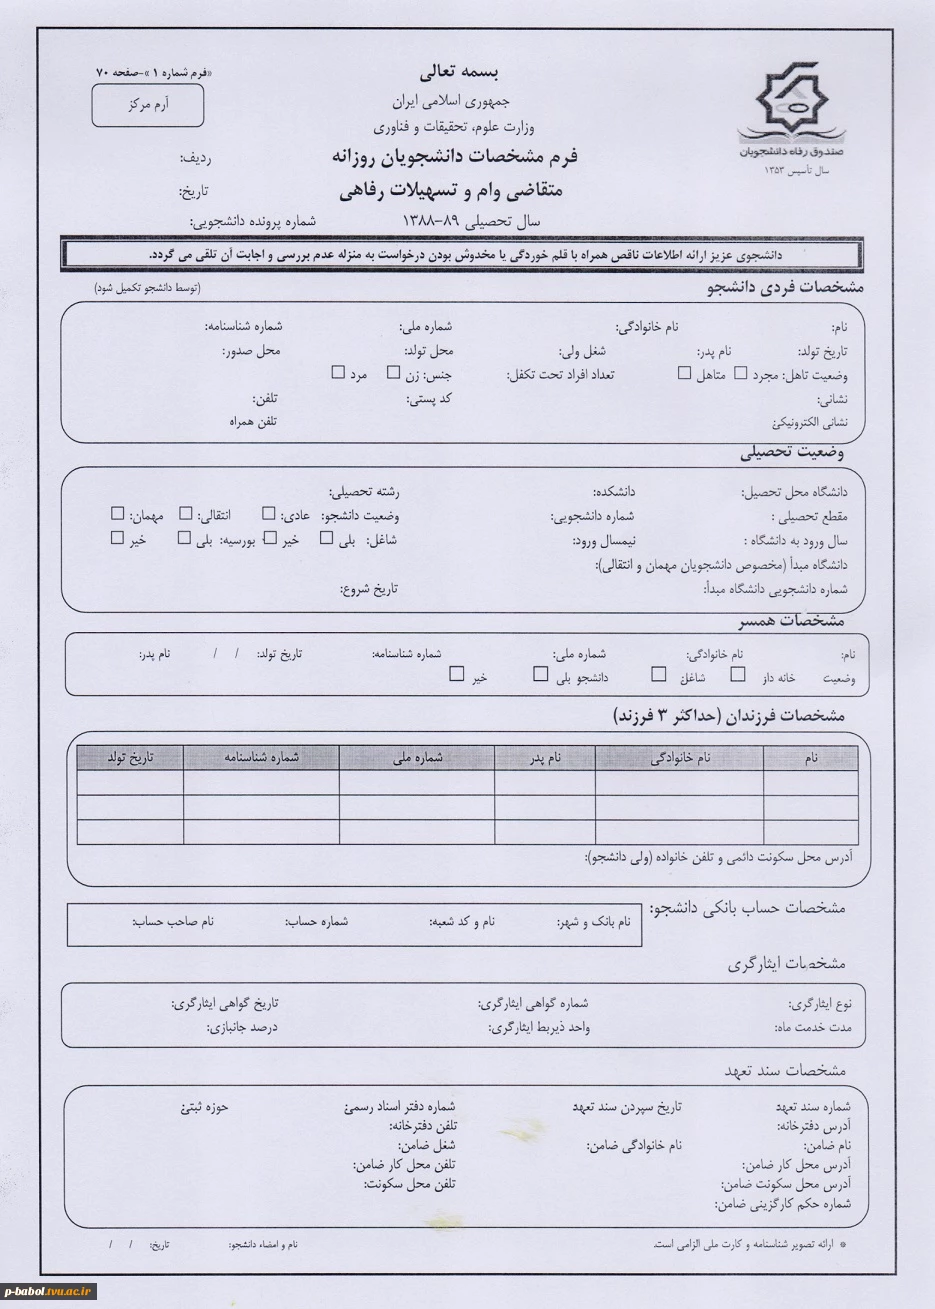 بسمه تعالی
جمهوری اسلامی ایران
وزارت علوم، تحقیقات و فناوری
فرم مشخصات دانشجویان روزانه
متقاضی وام و تسهیلات رفاهی
سال تحصیلی ۸۹-۱۳۸۸
صندوق رفاه دانشجویان
سال تأسیس ۱۳۵۳
«فرم شماره ۱»-صفحه ۷۰
آرم مرکز
ردیف:
تاریخ:
شماره پرونده دانشجویی:
دانشجوی عزیز ارائه اطلاعات ناقص همراه با قلم خوردگی یا مخدوش بودن درخواست به منزله عدم بررسی و اجابت آن تلقی می گردد.
مشخصات فردی دانشجو (توسط دانشجو تکمیل شود)
نام: نام خانوادگی: شماره ملی: شماره شناسنامه:
تاریخ تولد: نام پدر: شغل ولی: محل تولد: محل صدور:
وضعیت تاهل: مجرد □ متاهل □ تعداد افراد تحت تکفل: جنس: زن □ مرد □
نشانی: کد پستی: تلفن:
نشانی الکترونیکی تلفن همراه
وضعیت تحصیلی
دانشگاه محل تحصیل: دانشکده: رشته تحصیلی:
مقطع تحصیلی : شماره دانشجویی: وضعیت دانشجو: عادی: □ انتقالی: □ مهمان: □
سال ورود به دانشگاه : نیمسال ورود: شاغل: بلی □ خیر □ بورسیه: بلی □ خیر □
دانشگاه مبدأ (مخصوص دانشجویان مهمان و انتقالی):
شماره دانشجویی دانشگاه مبدأ: تاریخ شروع:
مشخصات همسر
نام: نام خانوادگی: شماره ملی: شماره شناسنامه: تاریخ تولد: / / نام پدر:
وضعیت خانه داز □ شاغل □ دانشجو بلی □ خیر □
مشخصات فرزندان (حداکثر ۳ فرزند)
نام نام خانوادگی نام پدر شماره ملی شماره شناسنامه تاریخ تولد
آدرس محل سکونت دائمی و تلفن خانواده (ولی دانشجو):
مشخصات حساب بانکی دانشجو:
نام بانک و شهر: نام و کد شعبه: شماره حساب: نام صاحب حساب:
مشخصات ایثارگری
نوع ایثارگری: شماره گواهی ایثارگری: تاریخ گواهی ایثارگری:
مدت خدمت ماه: واحد ذیربط ایثارگری: درصد جانبازی:
مشخصات سند تعهد
شماره سند تعهد تاریخ سپردن سند تعهد شماره دفتر اسناد رسمی حوزه ثبتی
آدرس دفترخانه: تلفن دفترخانه:
نام ضامن: نام خانوادگی ضامن: شغل ضامن:
آدرس محل کار ضامن: تلفن محل کار ضامن:
آدرس محل سکونت ضامن: تلفن محل سکونت:
شماره حکم کارگزینی ضامن:
* ارائه تصویر شناسنامه و کارت ملی الزامی است. نام و امضاء دانشجو: تاریخ: / /
p-babol.tvu.ac.ir